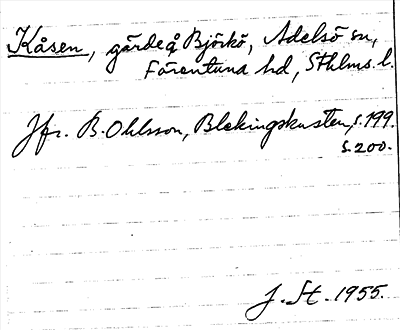 Kåsen, gärde å Björkö, Adelsö sn,
Färentuna hd, Sthlms l.
Jfr. B. Ohlsson, Blekingskusten, s. 199.
s. 200.
J. St. 1955.